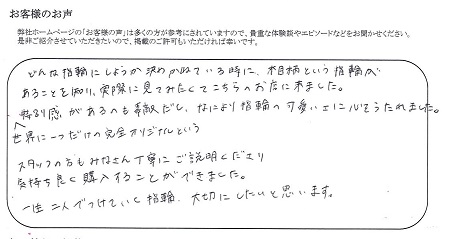 お客様のお声
弊社ホームページの「お客様の声」は多くの方が参考にされていますので、貴重な体験談やエピソードなどをお聞かせください。
是非ご紹介させていただきたいので、掲載のご許可もいただければ幸いです。
どんな指輪にしようか決めかねている時に、木目柄という指輪が
あることを知り、実際に見てみたくてこちらのお店に来ました。
特別感があるのも素敵だし、なにより指輪の可愛いさに心をうたれました。
世界に一つだけの完全オリジナルという
スタッフの方もみなさん丁寧にご説明くださり
気持ち良く購入することができました。
一生二人でつけていく指輪、大切にしたいと思います。